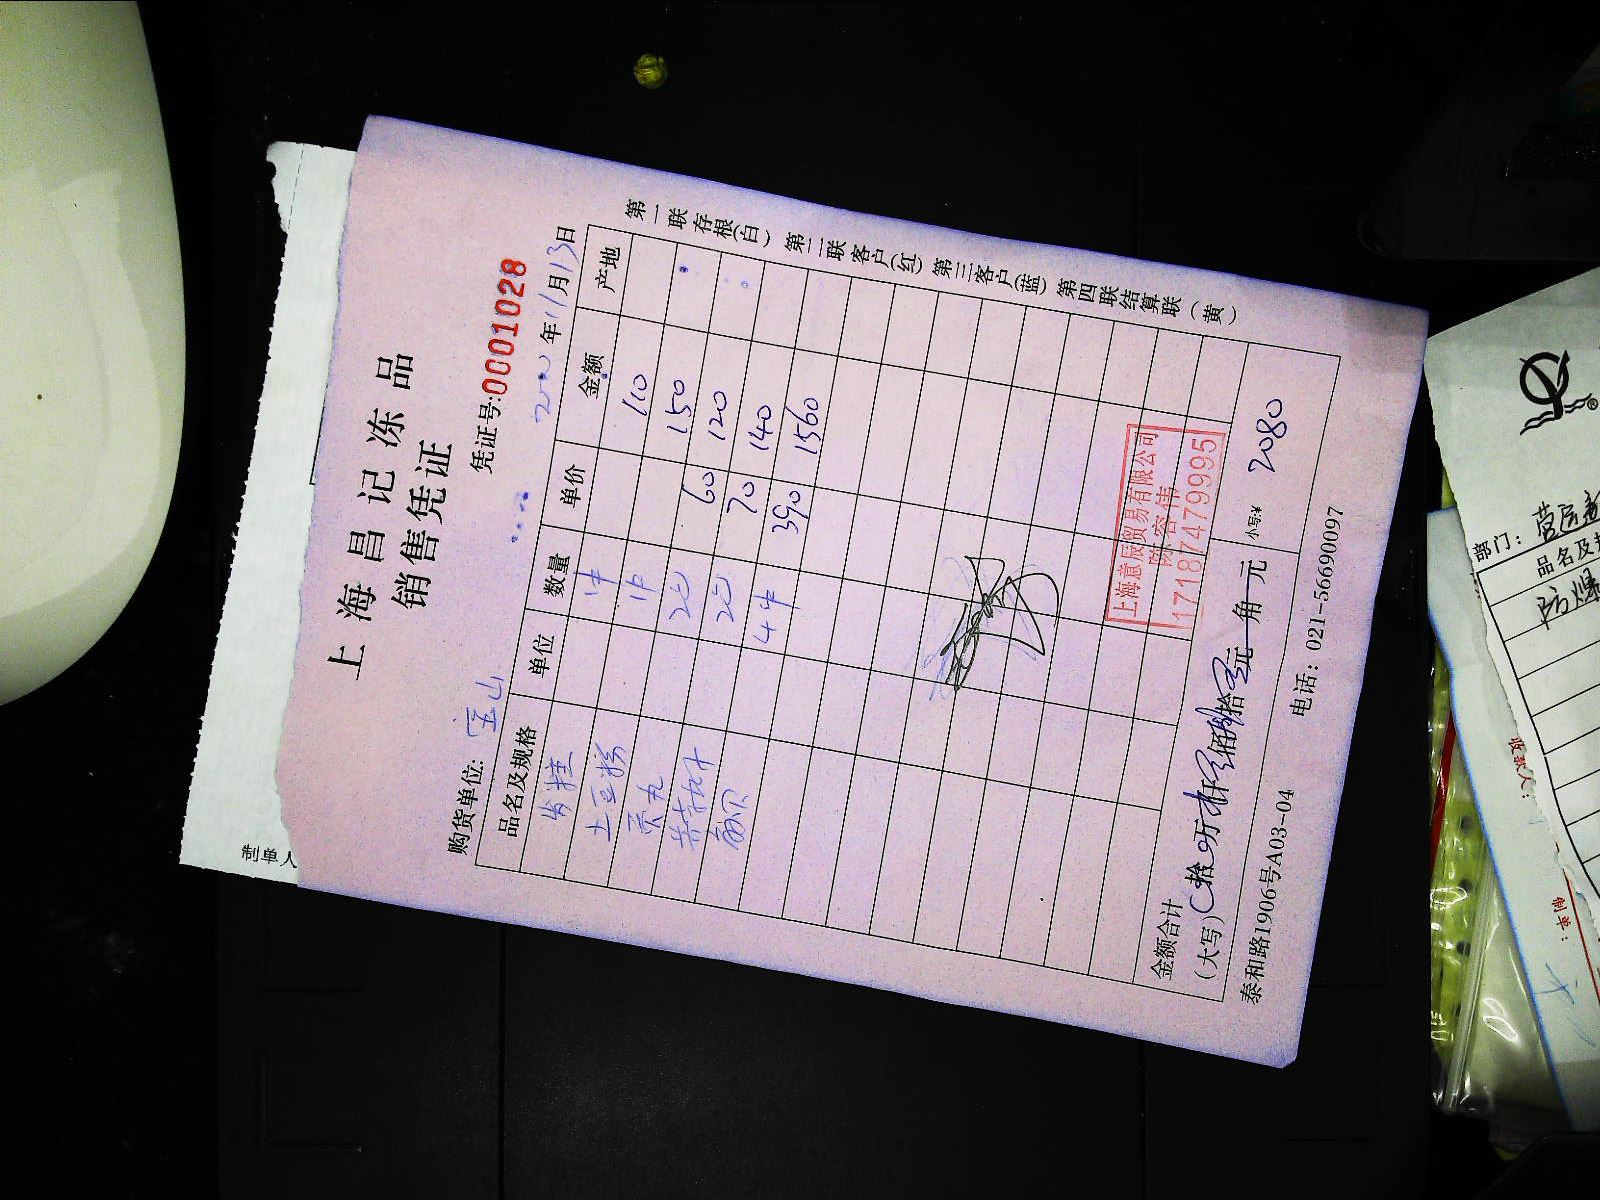 上海昌记冻品
销售凭证
凭证号:0001028
购货单位: 宝山
2020年11月13日
品名及规格 单位 数量 单价 金额 产地
1件 110
土豆粉 1件 150
贡丸 2包 60 120
2包 70 140
4件 390 1560
金额合计
(大写) 拾 万 仟 佰 拾 元 角 元 小写:¥ 2080
泰和路1906号A03-04 电话：021-56690097
第一联存根(白) 第二联客户(红) 第三客户(蓝) 第四联结算联(黄)
上海薏辰贸易有限公司
陈容伟
17187479995
制单人
部门：营运部
品名及规
防爆
收款人：
制单：